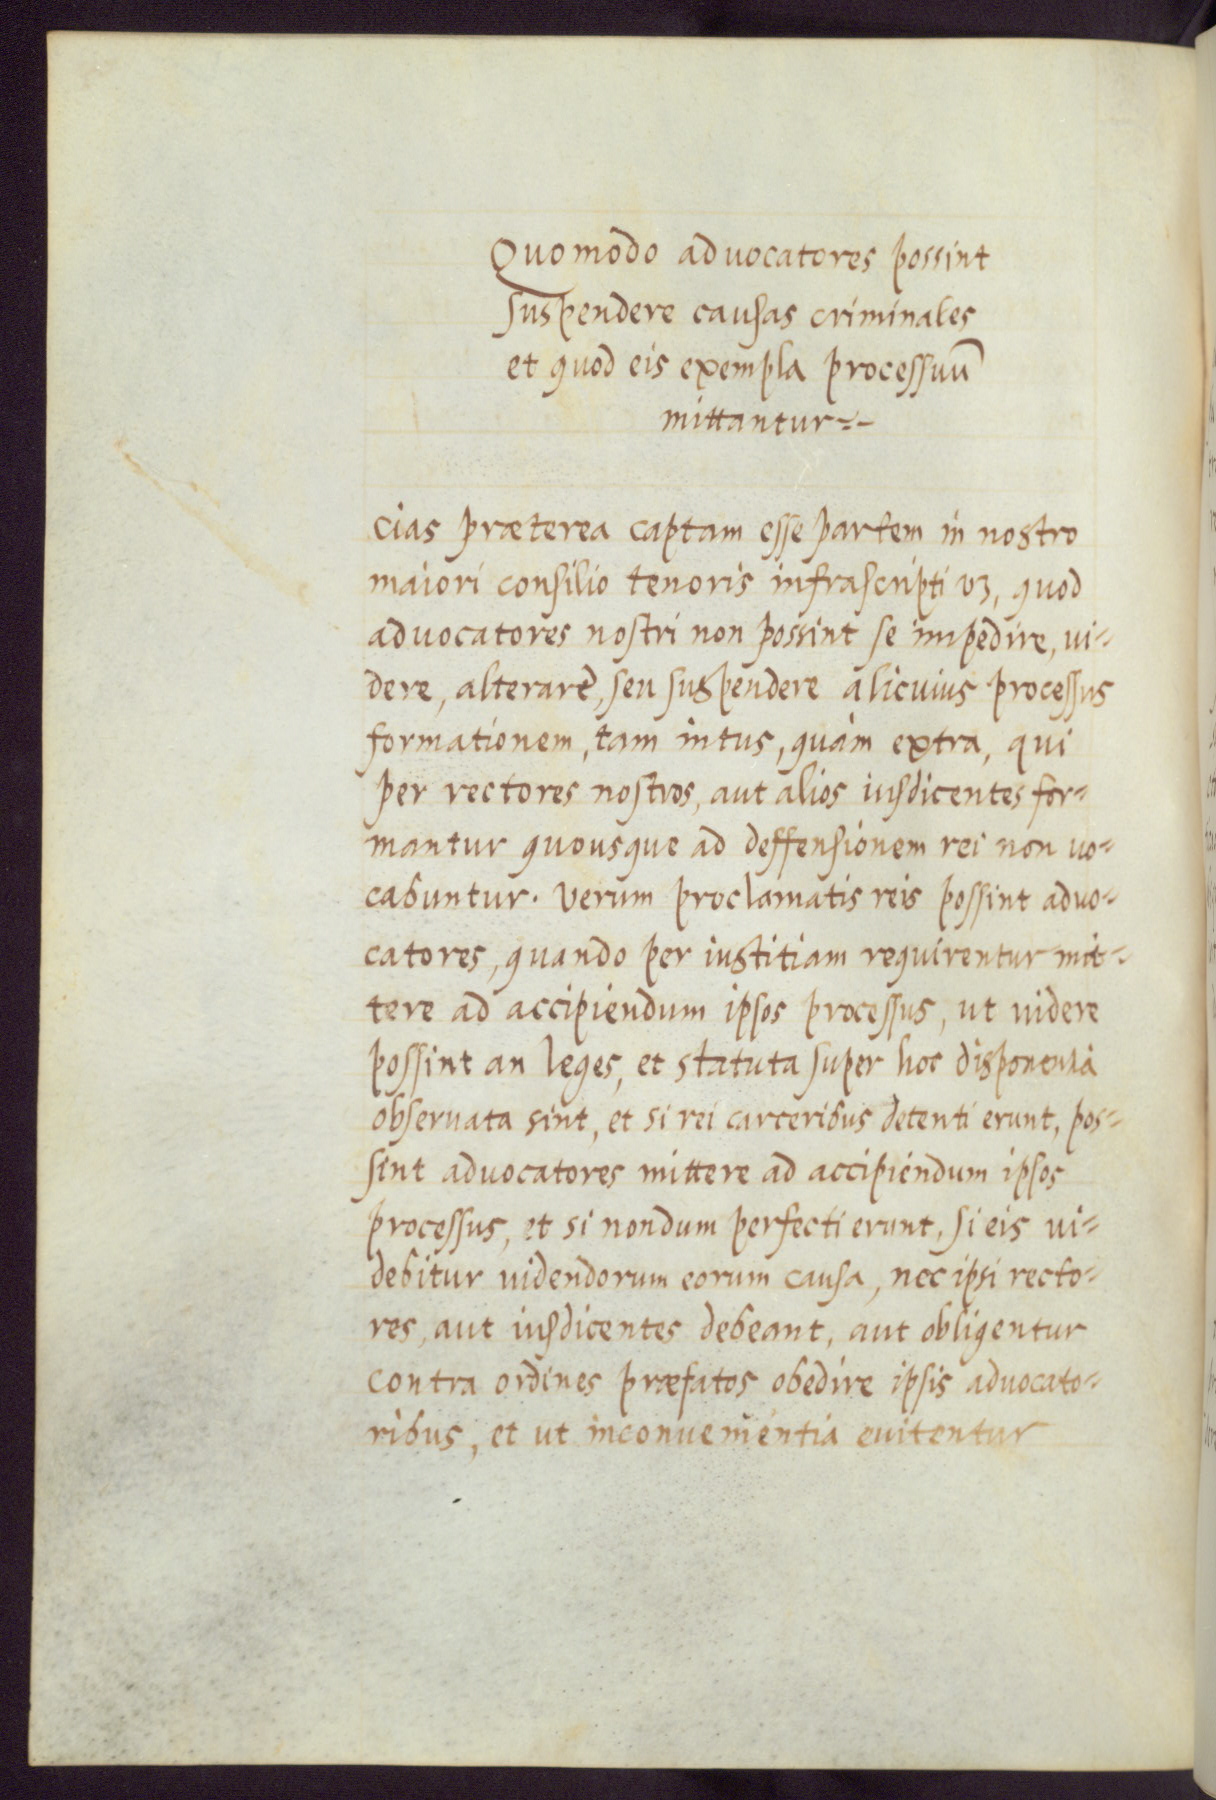 Quomodo advocatores possint
suspendere causas criminales
et quod eis exempla processuū
mittantur=-
cias præterea captam esse partem in nostro
maiori consilio tenoris infrascripti vz, quod
advocatores nostri non possint se impedire, vi=
dere, alterare, seu suspendere alicuius processus
formationem, tam intus, quàm extra, qui
per rectores nostros, aut alios iusdicentes for=
mantur quousque ad deffensionem rei non vo=
cabuntur. Verum proclamatis reis possint advo=
catores, quando per iustitiam requirentur mit=
tere ad accipiendum ipsos processus, ut videre
possint an leges, et statuta super hoc disponentia
observata sint, et si rei carceribus detenti erunt, pos=
sint advocatores mittere ad accipiendum ipsos
processus, et si nondum perfecti erunt, si eis vi=
debitur videndorum eorum causa, nec ipsi recto=
res, aut iusdicentes debeant, aut obligentur
contra ordines præfatos obedire ipsis advocato=
ribus, et ut inconvenientia evitentur